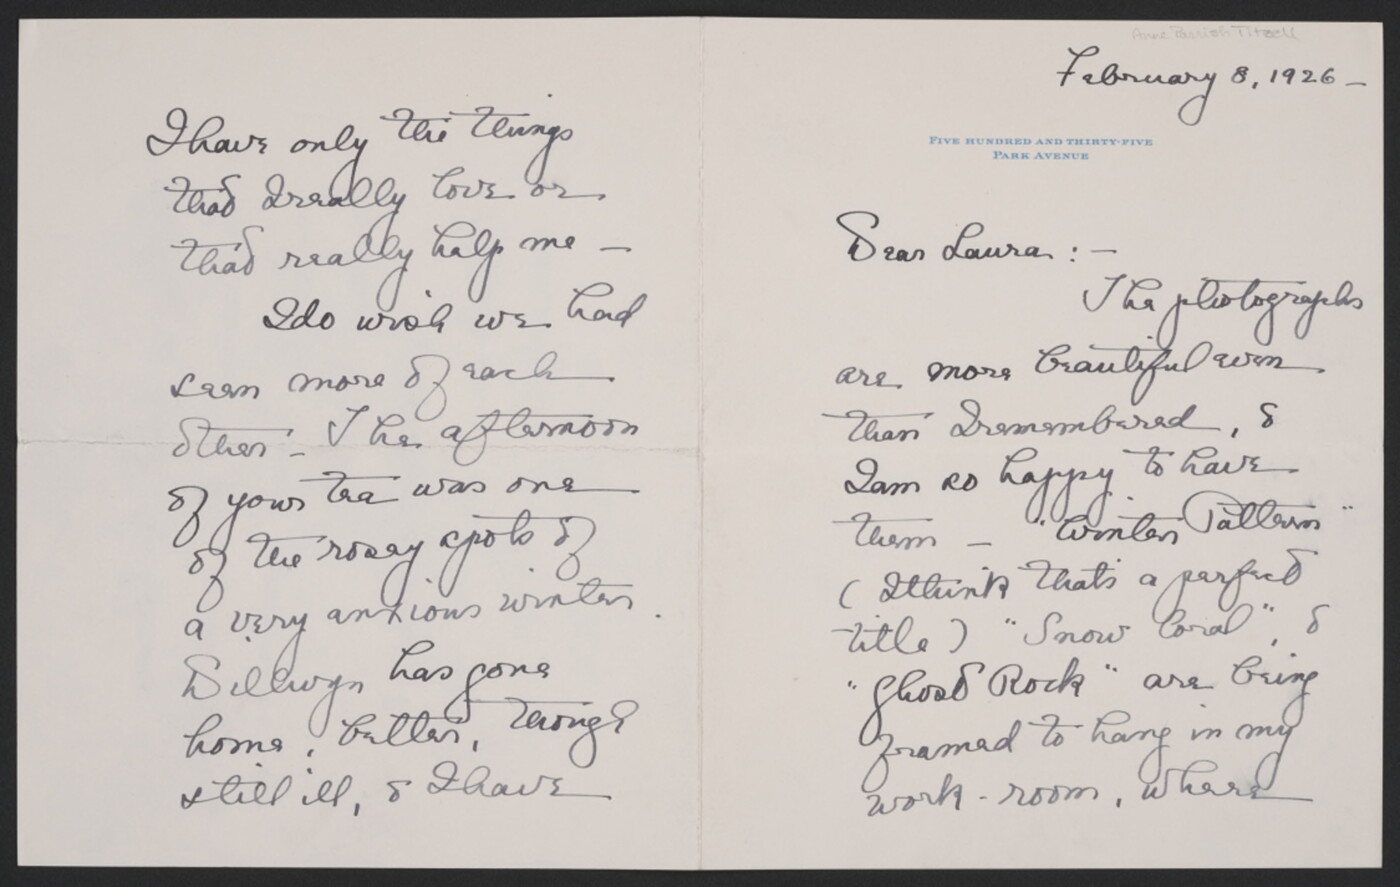 Anne Parrish Titzell
February 8, 1926 –
FIVE HUNDRED AND THIRTY-FIVE
PARK AVENUE
Dear Laura : –
The photographs
are more beautiful even
than I remembered, &
I am so happy to have
them – "Winter Pattern"
( I think that's a perfect
title ) "Snow Coral", &
"Ghost Rock" are being
framed to hang in my
work-room, where
I have only the things
that I really love or
that really help me –
I do wish we had
seen more of each
other – The afternoon
of your tea was one
of the rosey spots of
a very anxious winter.
Dillwyn has gone
home, better, though
still ill, & I have